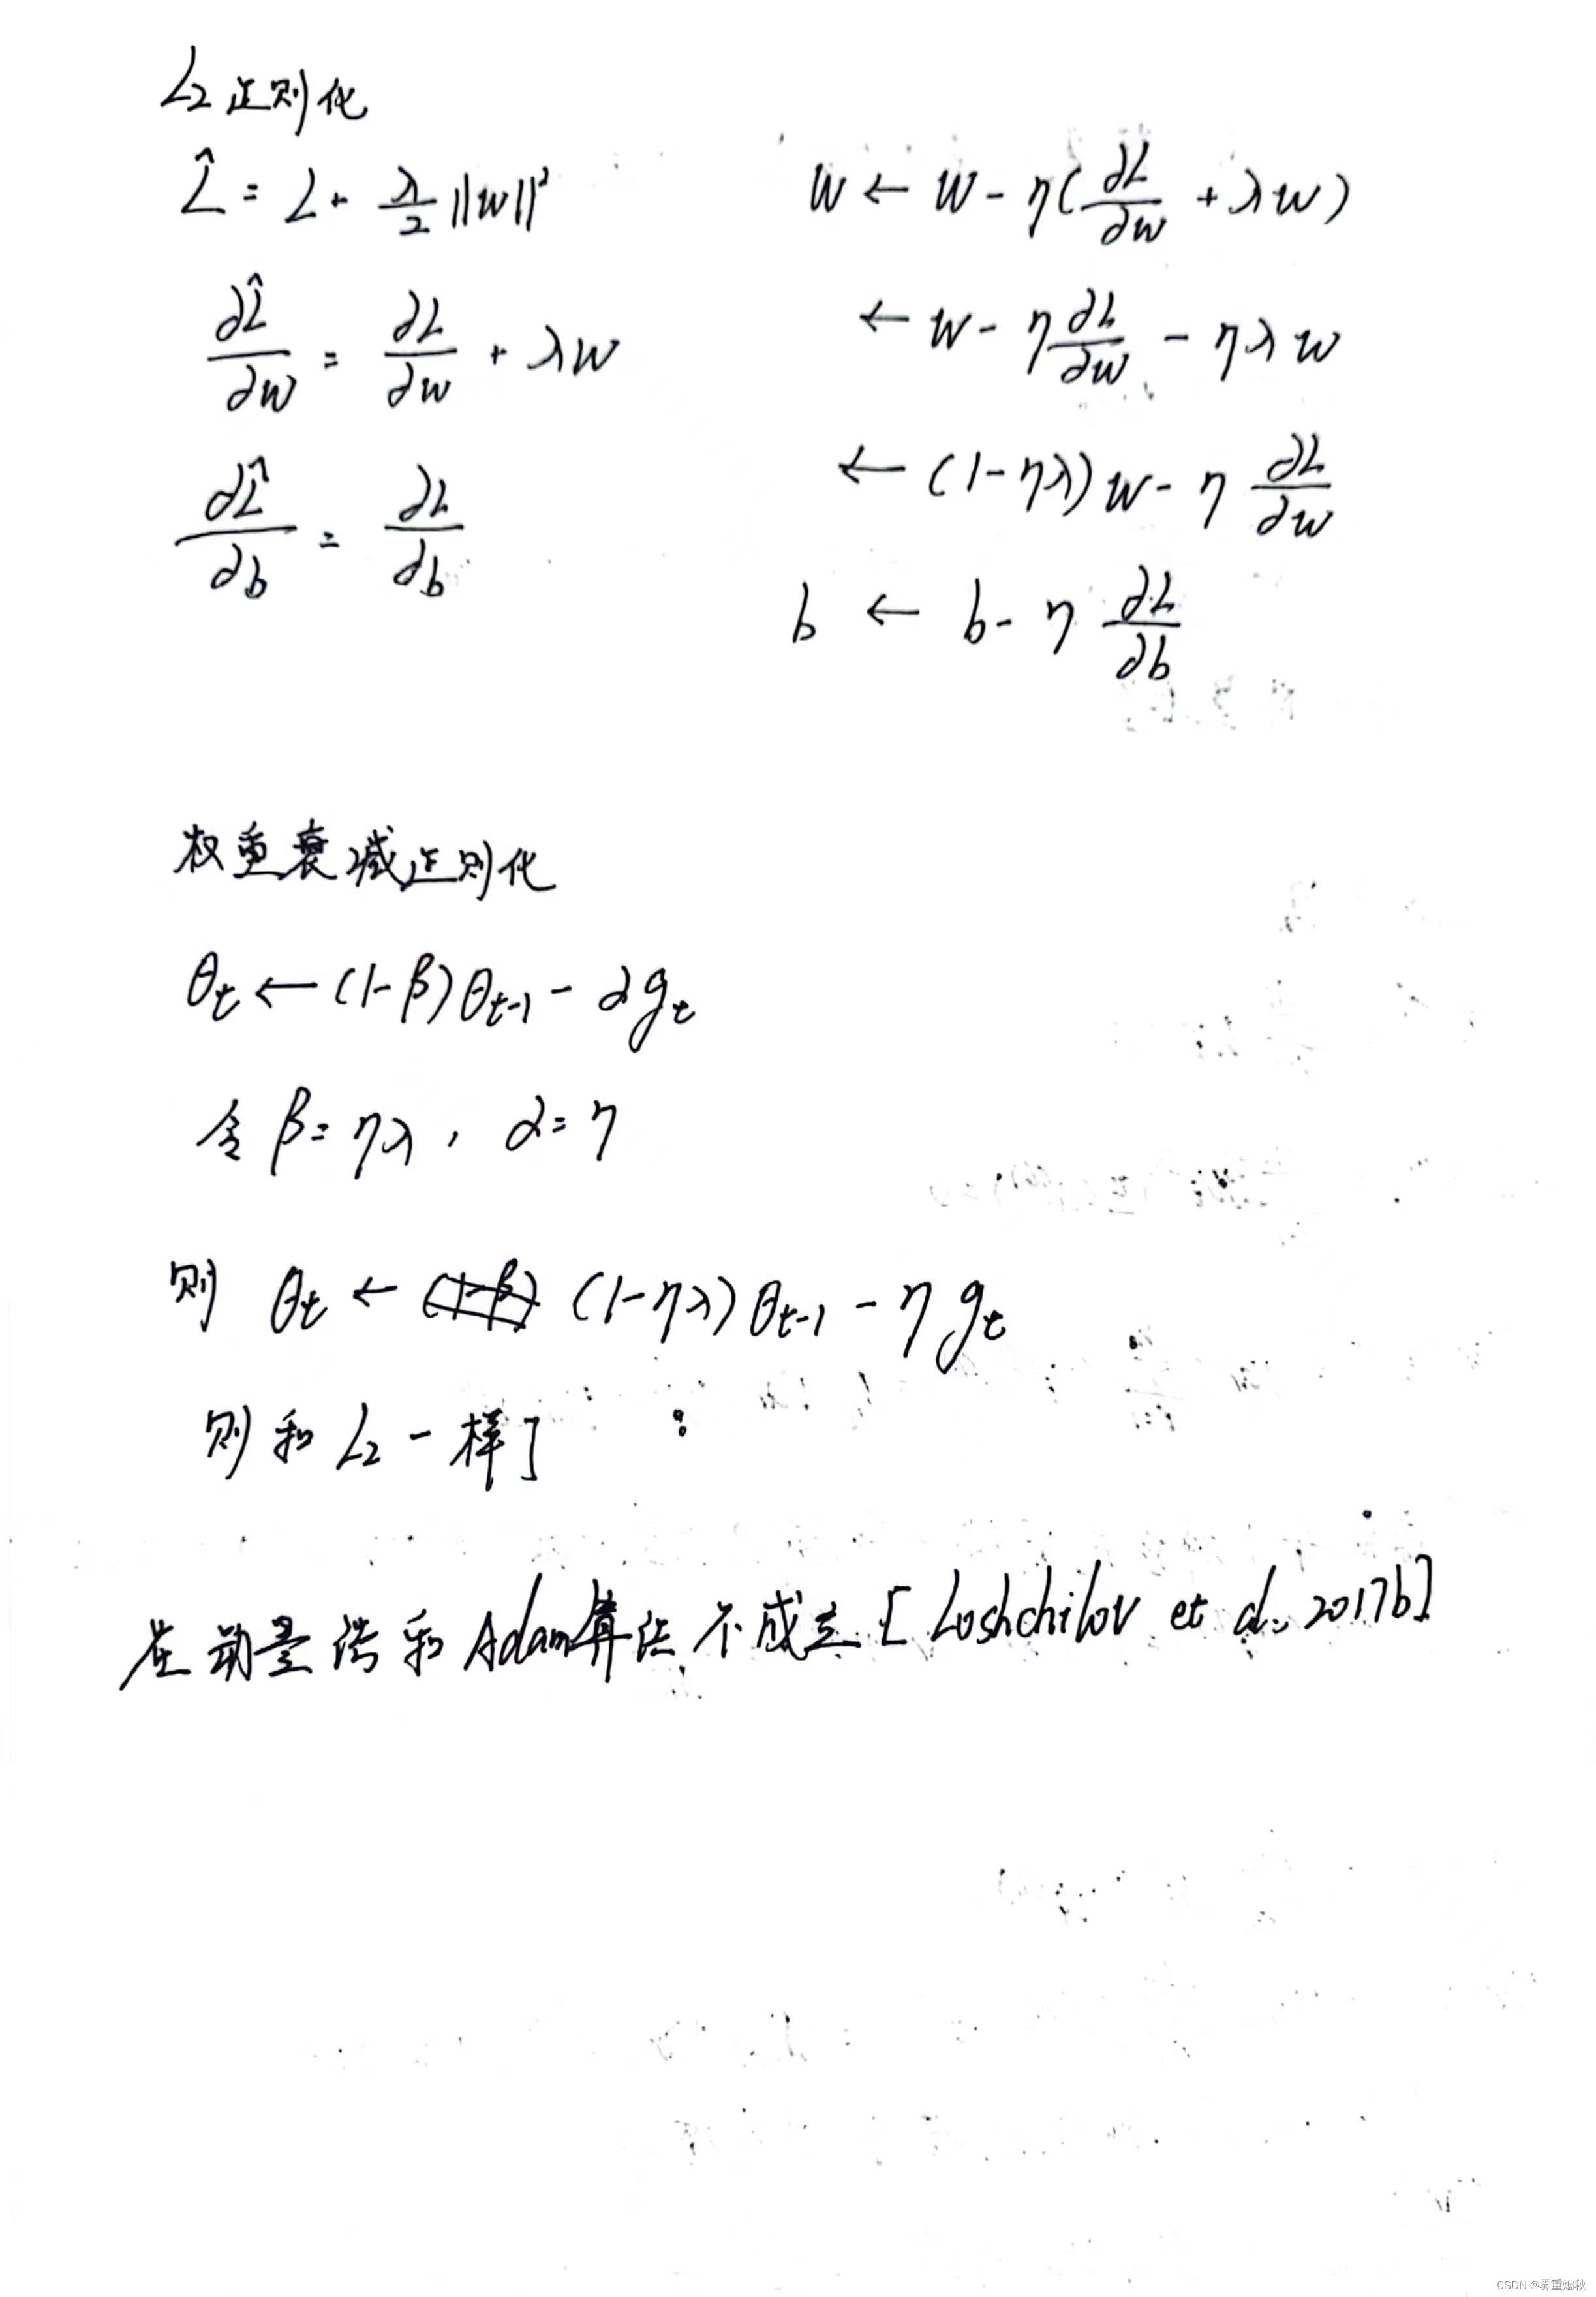 L₂正则化
L̂ = L + λ/2 ||w||²
∂L̂/∂w = ∂L/∂w + λw
∂L̂/∂b = ∂L/∂b
w ← w - η(∂L/∂w + λw)
← w - η ∂L/∂w - ηλw
← (1-ηλ)w - η ∂L/∂w
b ← b - η ∂L/∂b
权重衰减正则化
θt ← (1-β)θt-1 - αgt
令 β = ηλ, α = η
则 θt ← (1-β) (1-ηλ)θt-1 - ηgt
则和L₂一样了
在动量法和Adam算法不成立 [Loshchilov et al., 2017b]
CSDN @雾重烟秋